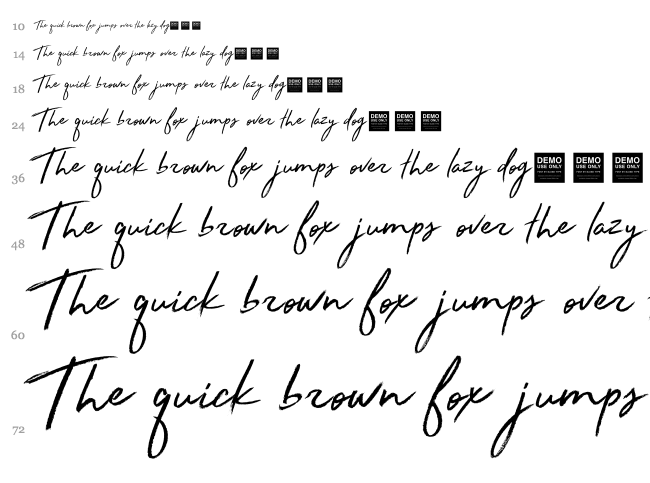 10 The quick brown fox jumps over the lazy dog
14 The quick brown fox jumps over the lazy dog
18 The quick brown fox jumps over the lazy dog DEMO DEMO DEMO
24 The quick brown fox jumps over the lazy dog DEMO USE ONLY DEMO USE ONLY DEMO USE ONLY
36 The quick brown fox jumps over the lazy dog DEMO USE ONLY DEMO USE ONLY DEMO USE ONLY
48 The quick brown fox jumps over the lazy
60 The quick brown fox jumps over
72 The quick brown fox jumps